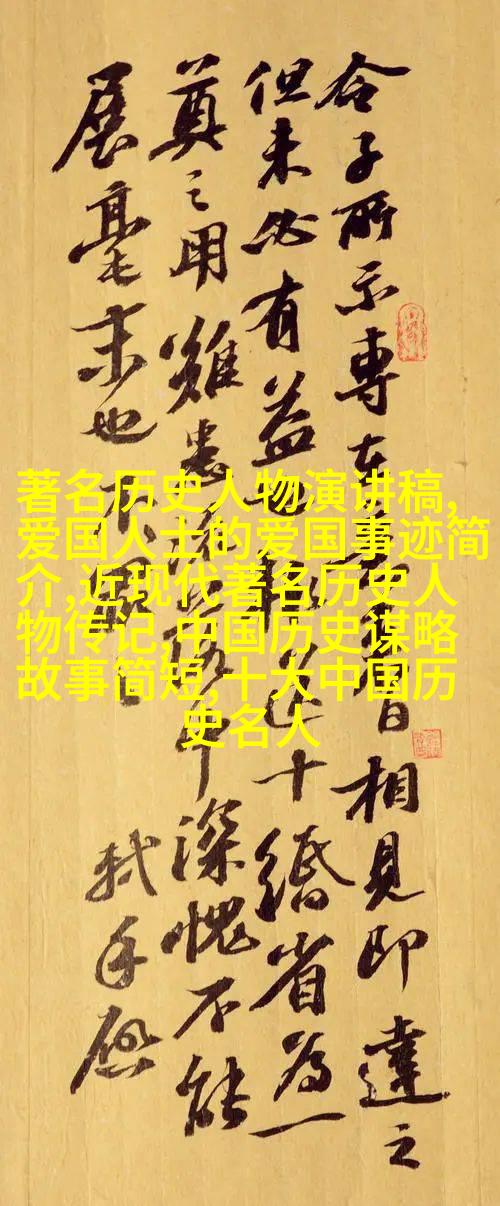 著名历史人物演讲稿,
爱国人士的爱国事迹简
介,近现代著名历史人
物传记,中国历史谋略
故事简短,十大中国历
史名人
令子所示專在日相見即達之
但未必有益十緡省為一
奠之用雖中深愧不能
展毫末也不罪
軾手啓